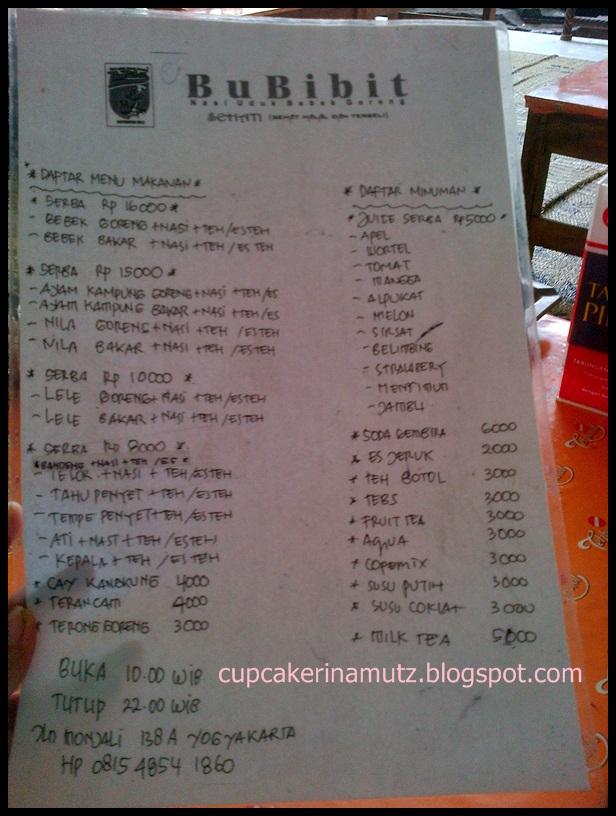 BuBibit
Nasi Uduk Bebek Goreng
SEHATI
* DAFTAR MENU MAKANAN *
* SERBA Rp 16000 *
- BEBEK GORENG + NASI + TEH / ES TEH
- BEBEK BAKAR + NASI + TEH / ES TEH
* SERBA Rp 15000 *
- AYAM KAMPUNG GORENG + NASI + TEH / ES
- AYAM KAMPUNG BAKAR + NASI + TEH / ES
- NILA GORENG + NASI + TEH / ES TEH
- NILA BAKAR + NASI + TEH / ES TEH
* SERBA Rp 10000 *
- LELE GORENG + NASI + TEH / ES TEH
- LELE BAKAR + NASI + TEH / ES TEH
* SERBA Rp 8000 *
* BANDENG + NASI + TEH / ES *
- TELOR + NASI + TEH / ES TEH
- TAHU PENYET + TEH / ES TEH
- TEMPE PENYET + TEH / ES TEH
- ATI + NASI + TEH / ES TEH
- KEPALA + TEH / ES TEH
* CAY KANGKUNG 4000
* TERANCAM 4000
* TERONG GORENG 3000
* DAFTAR MINUMAN *
* JUICE SERBA Rp 5000 *
- APEL
- WORTEL
- TOMAT
- MANGGA
- ALPUKAT
- MELON
- SIRSAT
- BELIMBING
- STRAWBERY
- MENTIMUN
- JAMBU
* SODA GEMBIRA 6000
* ES JERUK 2000
* TEH BOTOL 3000
* TEBS 3000
* FRUIT TEA 3000
* AQUA 3000
* COPEMIX 3000
* SUSU PUTIH 3000
* SUSU COKLAT 3000
* MILK TEA 5000
BUKA 10.00 WIB
TUTUP 22.00 WIB
Jln MONJALI 138 A YOGYAKARTA
HP 0815 4854 1860
cupcakerinamutz.blogspot.com